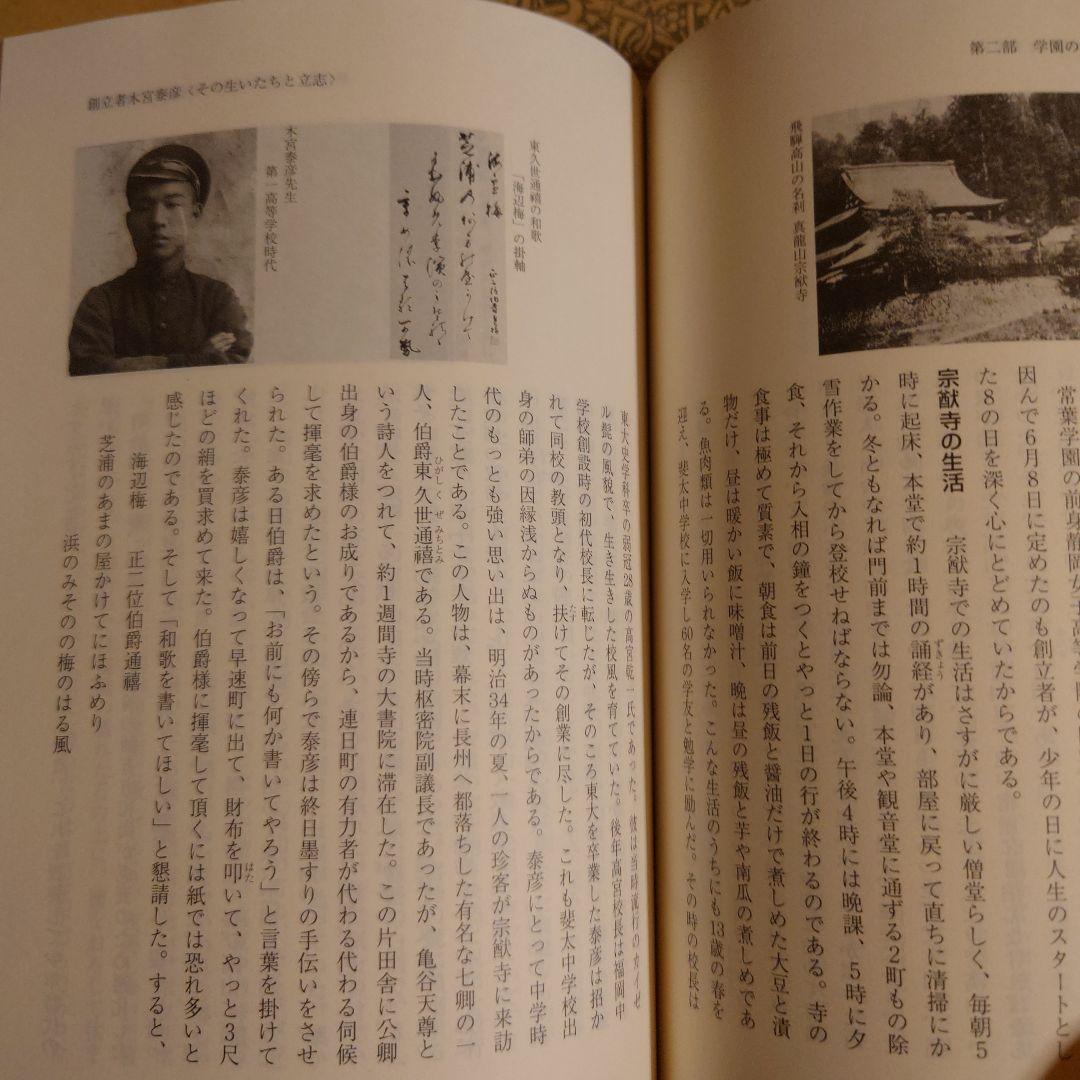 第二部 学園の
飛騨高山の名刹 真龍山宗猷寺
常葉学園の前身静岡女子高等学
因んで6月8日に定めたのも創立者が、少年の日に人生のスタートとし
た8の日を深く心にとどめていたからである。
宗猷寺の生活 宗猷寺での生活はさすがに厳しい僧堂らしく、毎朝5
時に起床、本堂で約1時間の誦経があり、部屋に戻って直ちに清掃にか
かる。冬ともなれば門前までは勿論、本堂や観音堂に通ずる2町もの除
雪作業をしてから登校せねばならない。午後4時には晩課、5時に夕
食、それから入相の鐘をつくとやっと1日の行が終わるのである。寺の
食事は極めて質素で、朝食は前日の残飯と醤油だけで煮しめた大豆と漬
物だけ、昼は暖かい飯に味噌汁、晩は昼の残飯と芋や南瓜の煮しめであ
る。魚肉類は一切用いられなかった。こんな生活のうちにも13歳の春を
迎え、斐太中学校に入学し60名の学友と勉学に励んだ。その時の校長は
創立者木宮泰彦〈その生いたちと立志〉
東久世通禧の和歌
「海辺梅」の掛軸
木宮泰彦先生
第一高等学校時代
東大史学科卒の弱冠28歳の高宮乾一氏であった。彼は当時流行のカイゼ
ル髭の風貌で、生き生きした校風を育てていた。後年高宮校長は福岡中
学校創設時の初代校長に転じたが、そのころ東大を卒業した泰彦は招か
れて同校の教頭となり、扶けてその創業に尽した。これも斐太中学校出
身の師弟の因縁浅からぬものがあったからである。泰彦にとって中学時
代のもっとも強い思い出は、明治34年の夏、一人の珍客が宗猷寺に来訪
したことである。この人物は、幕末に長州へ都落ちした有名な七卿の一
人、伯爵東久世通禧である。当時枢密院副議長であったが、亀谷天尊と
いう詩人をつれて、約1週間寺の大書院に滞在した。この片田舎に公卿
出身の伯爵様のお成りであるから、連日町の有力者が代わる代わる伺候
して揮毫を求めたという。その傍らで泰彦は終日墨すりの手伝いをさせ
られた。ある日伯爵は、「お前にも何か書いてやろう」と言葉を掛けて
くれた。泰彦は嬉しくなって早速町に出て、財布を叩いて、やっと3尺
ほどの絹を買求めて来た。伯爵様に揮毫して頂くには紙では恐れ多いと
感じたのである。そして「和歌を書いてほしい」と懇請した。すると、
海辺梅 正二位伯爵通禧
芝浦のあまの屋かけてにほふめり
浜のみそのの梅のはる風